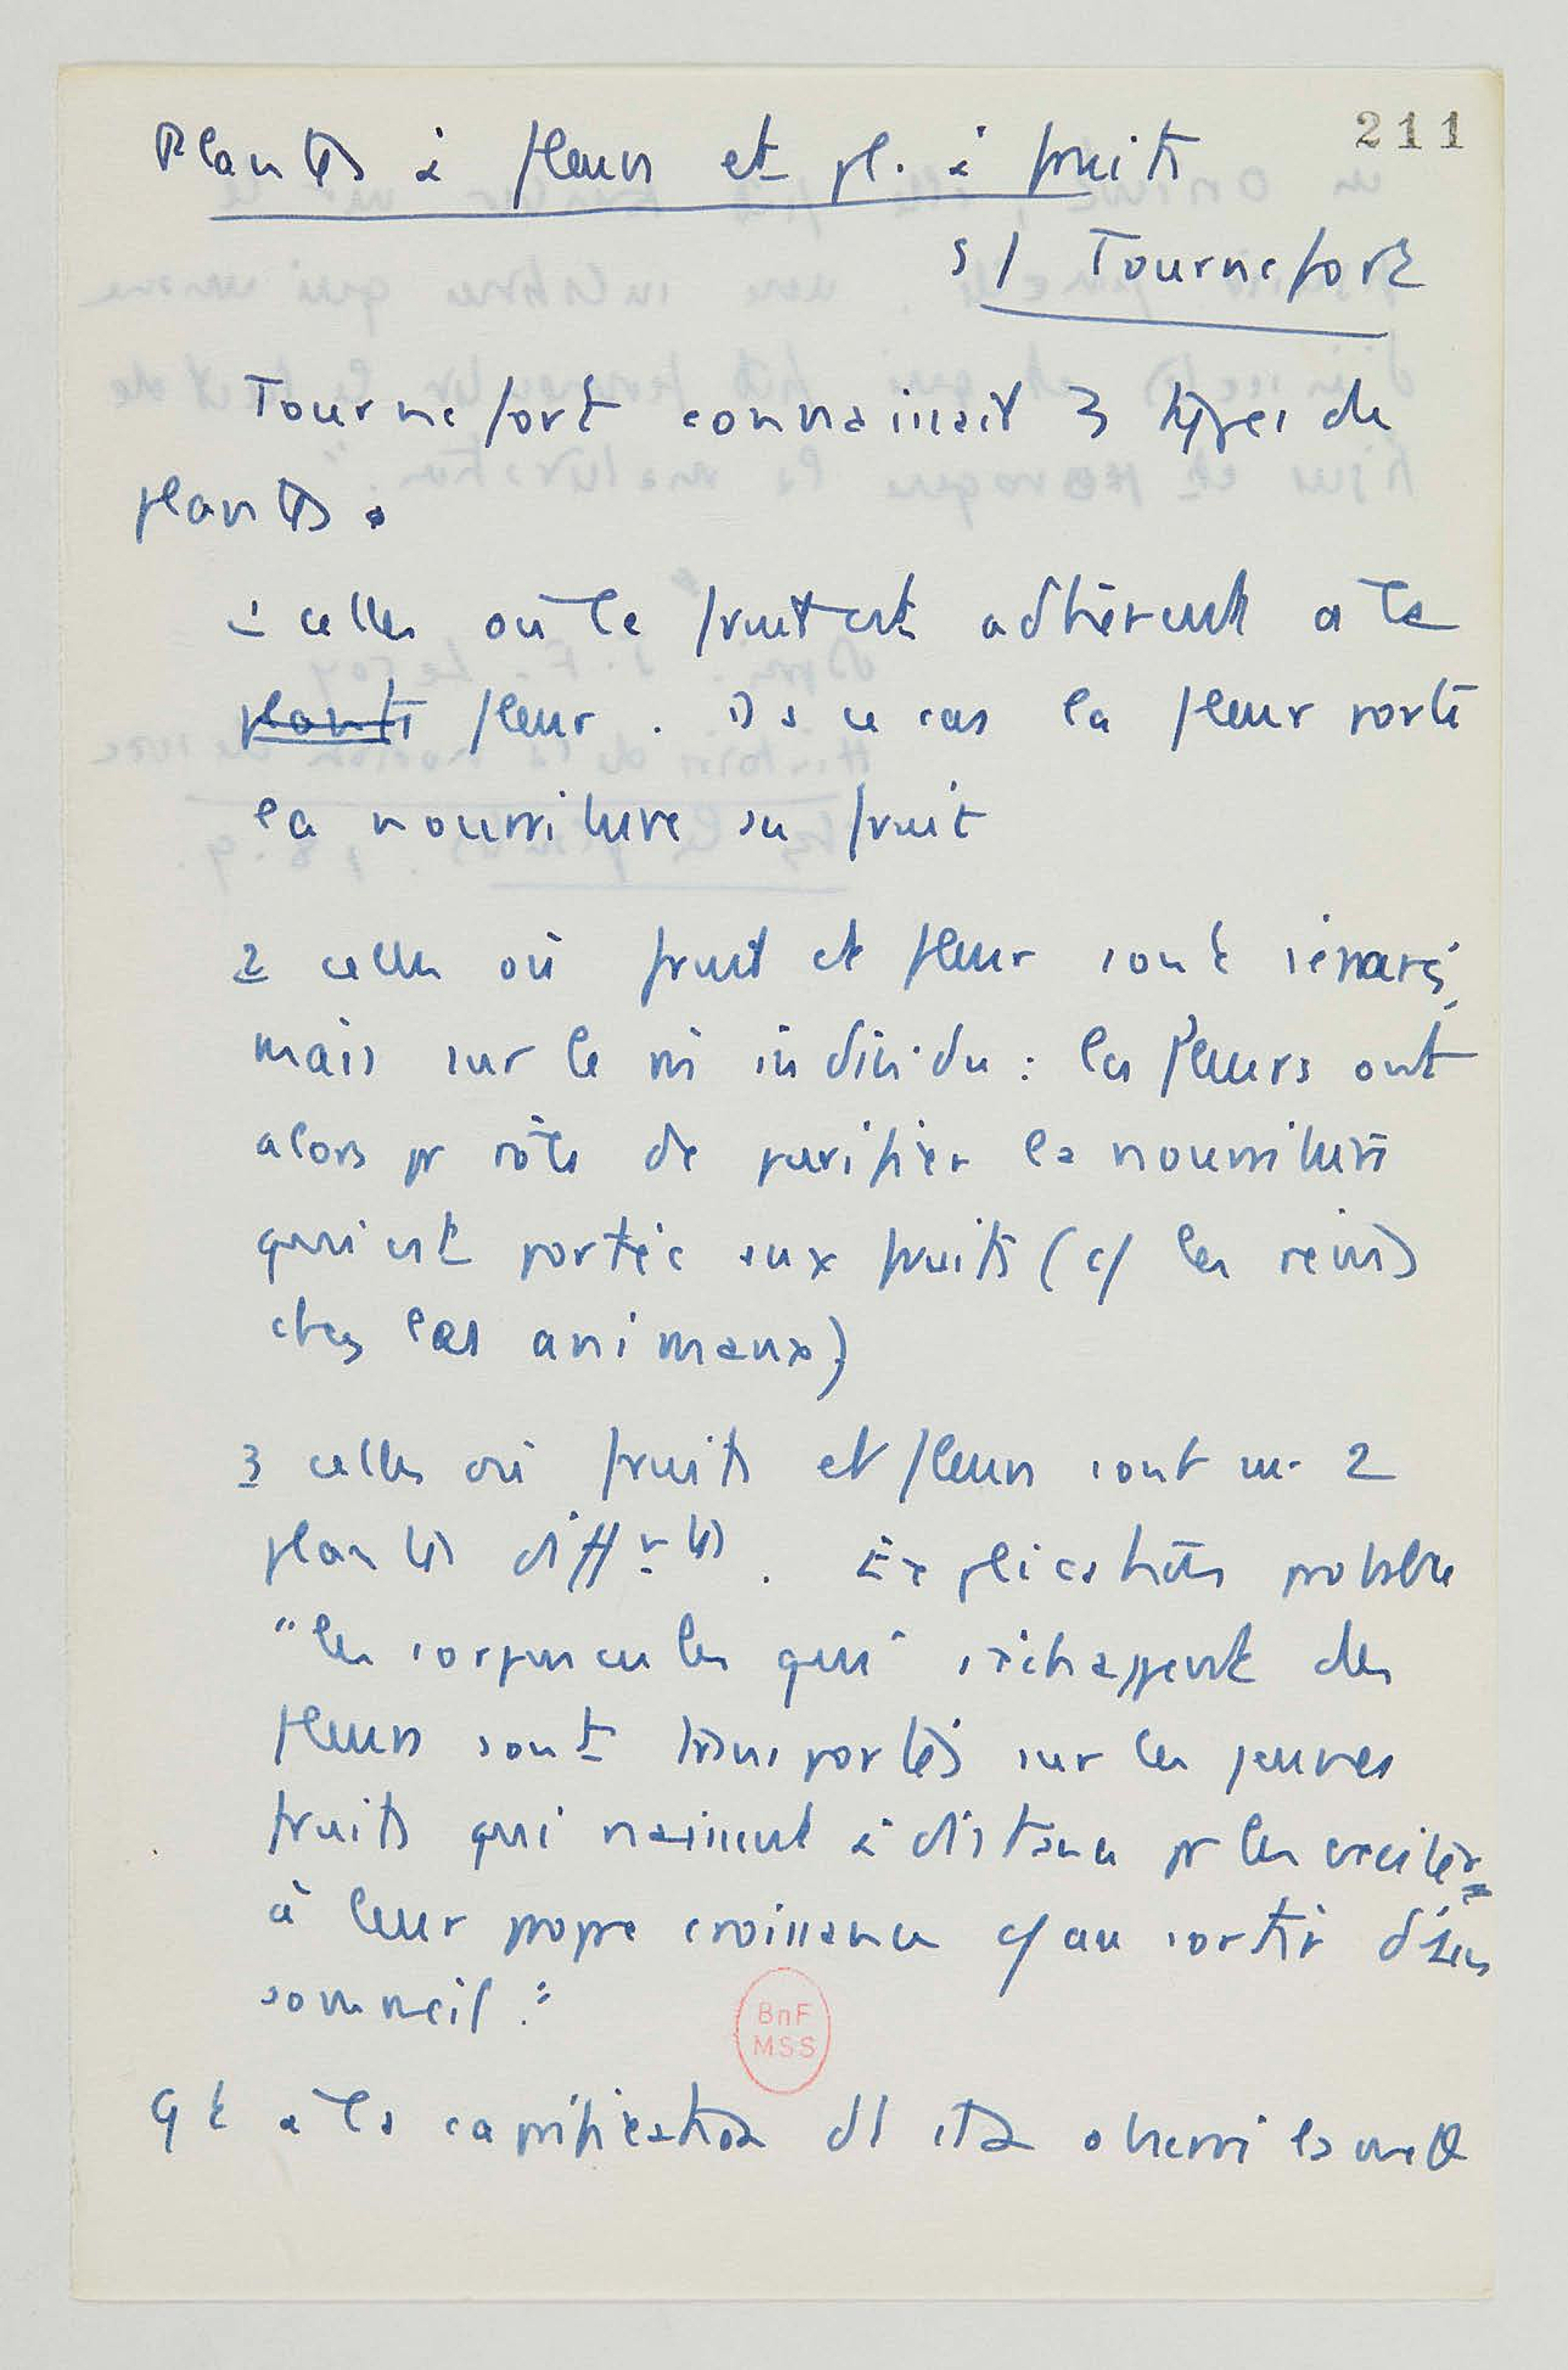 211
Plantes à fleurs et pl. à fruits
s/ Tournefort
Tournefort connaissait 3 types de
plantes.
1 celles où le fruit est adhérent à la
plante fleur. Ds ce cas la fleur porte
la nourriture au fruit
2 celles où fruit et fleur sont séparés,
mais sur le m̂ individu : les fleurs ont
alors pr rôle de purifier la nourriture
qui est portée aux fruits (cf les reins
chez les animaux)
3 celles où fruits et fleurs sont sur 2
plantes diffrtes. Explication probable
"les corpuscules qui s'échappent des
fleurs sont transportés sur les jeunes
fruits qui naissent à distance pr les exciter
à leur propre croissance cf au sortir d'un
sommeil."
Qt à la caprification
BnF
MSS